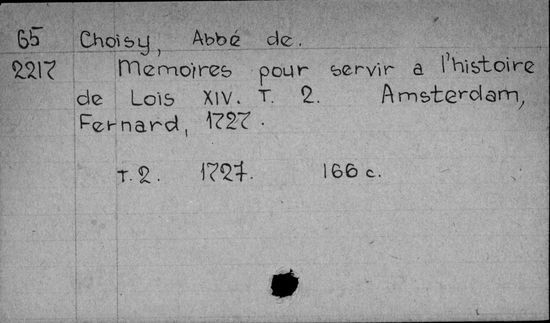 65 Choisy, Abbé de.
2217 Memoires pour servir a l'histoire
de Lois XIV. T. 2. Amsterdam,
Fernard, 1727.
T. 2. 1727. 166 c.